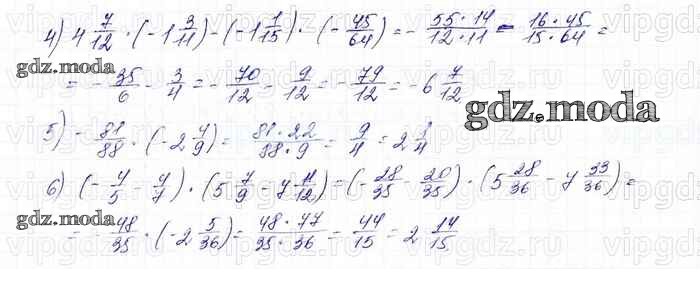 4) 4 7/12 · (-1 3/11) - (-1 1/15) · (-45/64) = - 55·14/12·11 - 16·45/15·64 =
gdz.moda
= - 35/6 - 3/4 = - 70/12 - 9/12 = - 79/12 = - 6 7/12
gdz.moda
5) - 81/88 · (-2 4/9) = 81·22/88·9 = 9/4 = 2 1/4
6) (- 4/5 - 4/7) · (5 7/9 - 7 11/12) = (- 28/35 - 20/35) · (5 28/36 - 7 33/36) =
gdz.moda
= - 48/35 · (-2 5/36) = 48·77/35·36 = 44/15 = 2 14/15